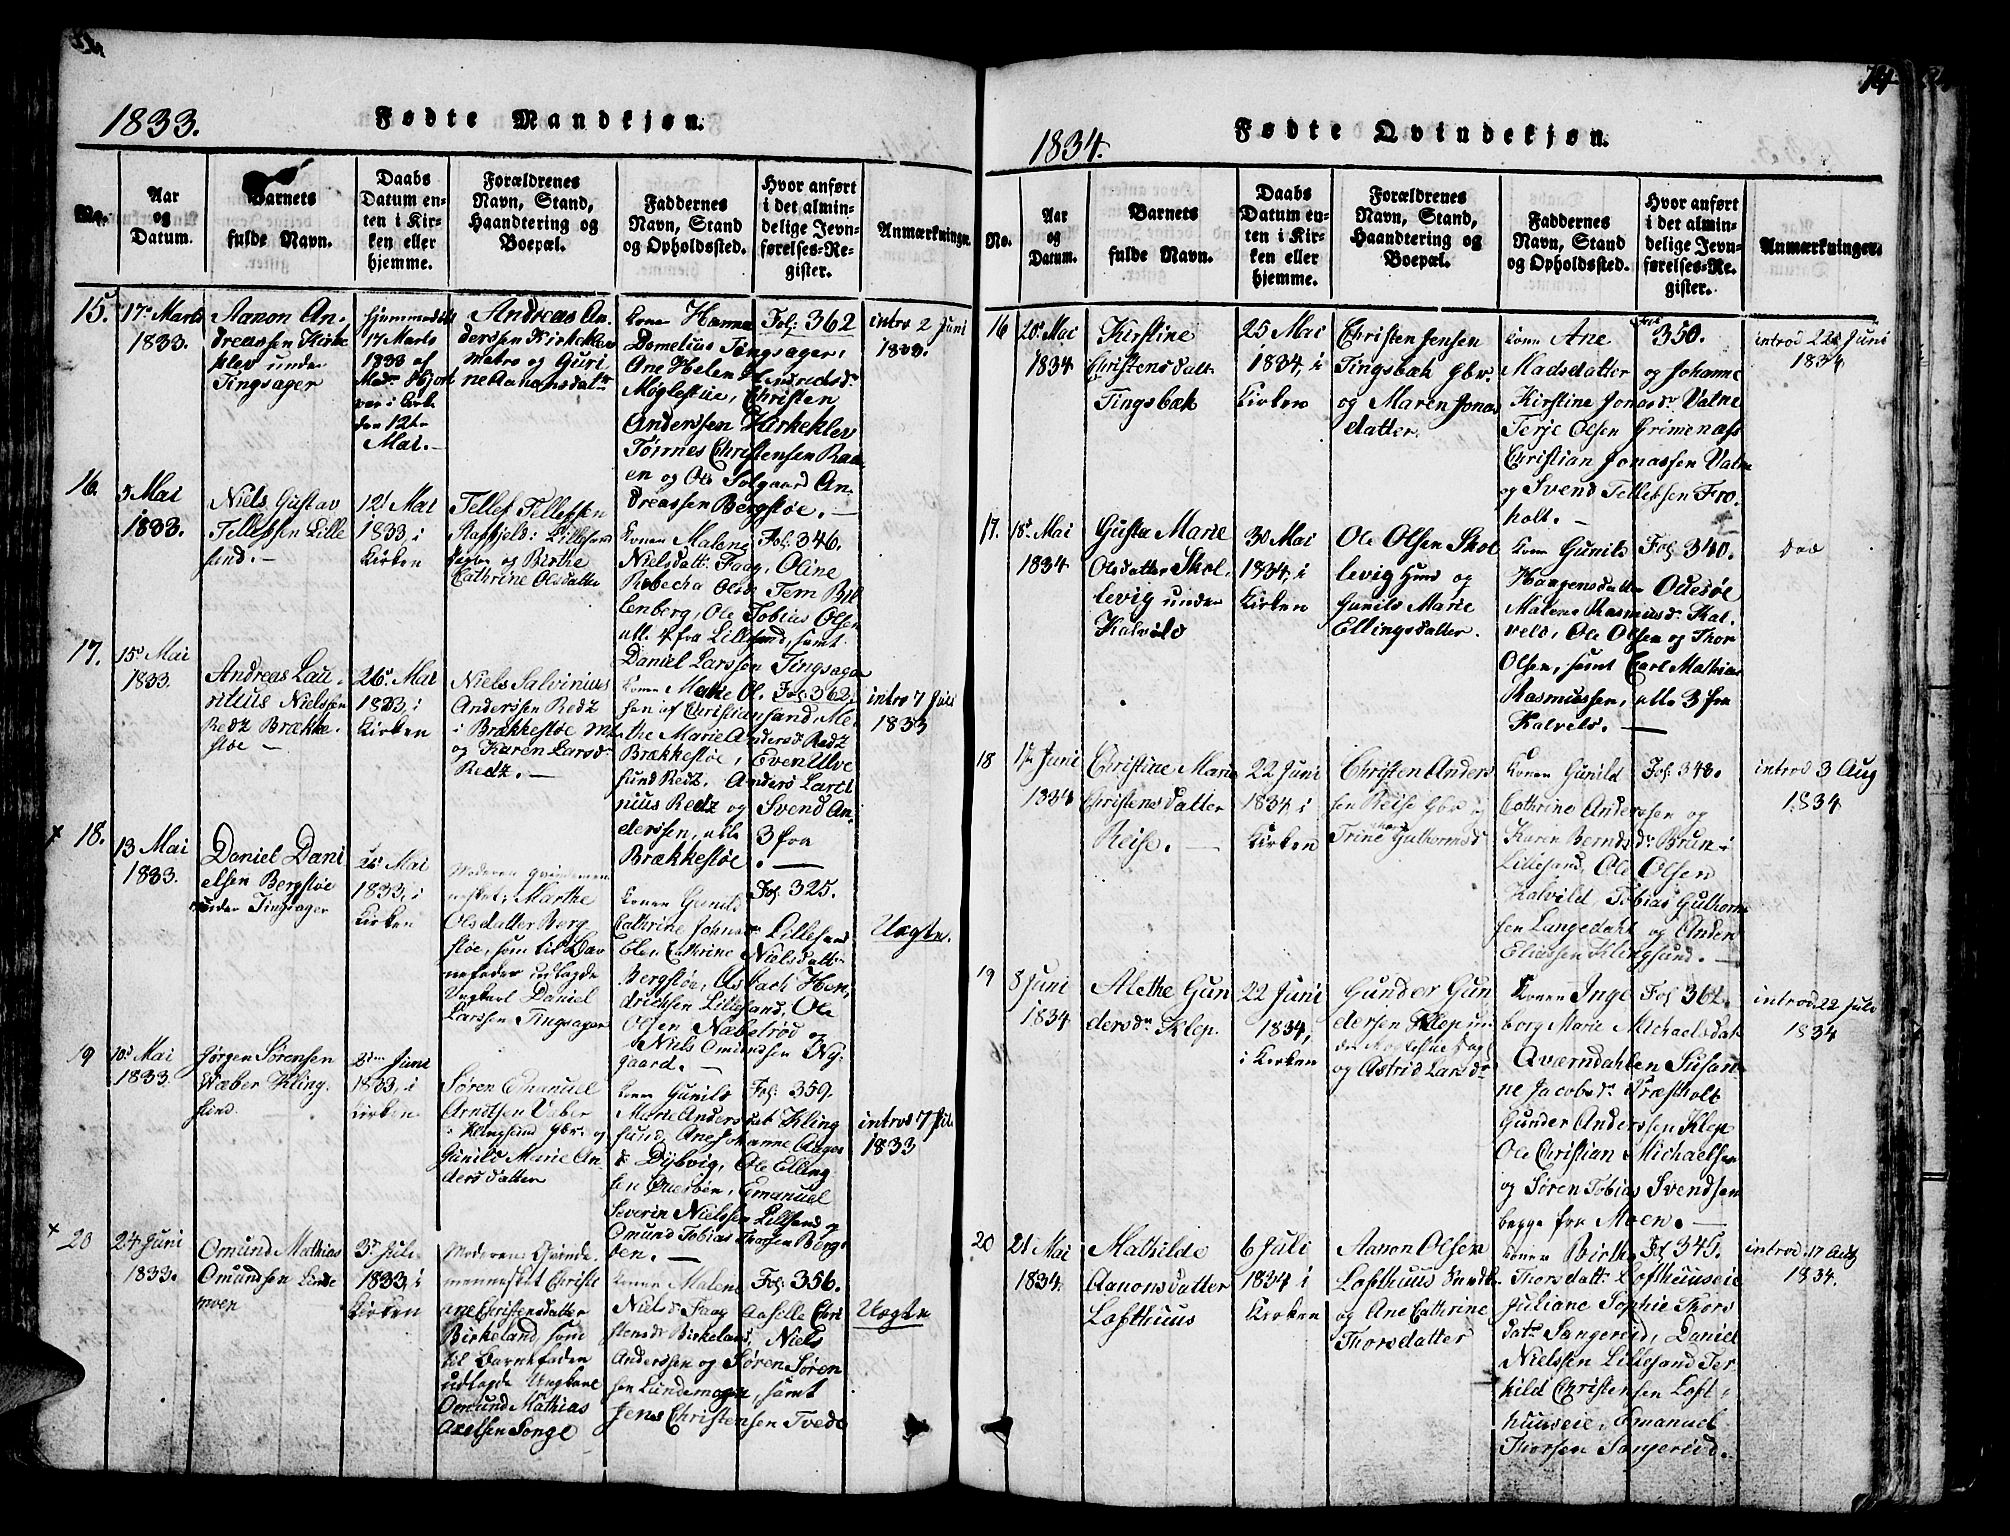 1833.
Fødte Mandkjøn.
No.
Aar
og
Datum.
Barnets
fulde Navn.
Daabs
Datum en-
ten i Kir-
ken eller
hjemme.
Forældrenes
Navn, Stand,
Haandtering og
Boepæl.
Faddernes
Navn, Stand
og Opholdssted.
Hvor anført
i det almin-
delige Jevn-
førelses-Re-
gister.
Anmærkninge
15.
17. Marts
1833.
Aanon An-
dreassen Kirke
klev under
Tingsager
17 Marts
1833 af
den 12te
Mai.
Andreas An-
derssen Kirkeklev
og Guri
ne Aanonsdatr
Konen Hanna
Fol: 362
Cornelius Tingsager,
Ane Helene Hendrichsdr
Møglestue, Christen
Anderssen Kirkeklev
Tønnes Christensen Raa-
en og Ole Solgaard An-
dreassen Bergstøe.
intro 2 Juni
1833.
16.
5 Mai
1833.
Niels Gustav
Tellefsen Lille
sand.
12 Mai
1833, i
Kirken
Tellef Tellefsen
Lillesand
og Birthe
Cathrine Olsdatter
Konen Malene
Fol: 346.
Nielsdatt: Faag, Oline
Olsdr
Ole Tobias Olsen
fra Lillesand, samt
Daniel Larssen Tingsager
17.
15 Mai
1833.
Andreas Lau-
ritius Nielssen
Retz Brække-
støe
26 Mai
1833, i
Kirken
Niels Salvinius
Anderssen Retz
i Brækkestøe
og Karen Larsdr
Retz.
Konen
Fol: 362.
sen af Christiansand,
the Marie Andersdr Retz
Brækkestøe, Even Ulve
sund Retz, Anders Larei
nius Retz og Svend An-
derssen, alle 3 fra
Brækkestøe.
introd 7 Juli
1833
18.
13 Mai
1833.
Daniel Dani
elsen Bergstøe
under Tingsager
Mai
1833, i
Kirken
Moderen qvindemen
nesket: Marthe
Olsdatter Berg
støe, som til Bar
nefader udlagde
Ungkarl Daniel
Larssen Tingsager
Konen Gunild
Fol: 325.
Cathrine
Lillesand
Elen Cathrine Nielsdatt:
Bergstøe, Hen-
drichsen Lillesand, Ole
Olsen og
Niels Omundsen Ny-
gaard.
Uægte.
19
10 Mai
1833.
Jørgen Sørensen
Wæber Kling-
sund.
Juni
1833, i
Kirken
Søren Emanuel
Arntsen Veber
i Klingsund Gbr. og
Gunild Marie An
dersdatter
Konen Gunild
Fol: 359.
Marie Andersdatt Kling
sund, Ane Johanne Aages
dr Dybvig, Ole Elling
sen Emanuel
Severin Nielssen Lillesand og
Omund Tobias Bergs
introd 7 Juli
1833
20
24 Juni
1833.
Omund Mathias
Omundsen Linde
moen
Juli
1833 i
Kirken
Moderen: Qvinde
mennesket Christi
ane Christensdatter
Birkeland som
til Barnefader
udlagde Ungkarl
Omund Mathias
Axelsen Songe
Konen Malene
Fol: 356.
Nielsdr Faag
Chri
stensdr Birkeland, Niels
Anderssen og Søren Søren
sen Lundemoen, samt
Jens Christensen Tvede
Uægte
74
1834.
Fødte Qvindekjøn.
No.
Aar
og
Datum.
Barnets
fulde Navn.
Daabs
Datum en-
ten i Kir-
ken eller
hjemme.
Forældrenes
Navn, Stand,
Haandtering og
Boepæl.
Faddernes
Navn, Stand
og Opholdssted.
Hvor anført
i det almin-
delige Jevn-
førelses-Re-
gister.
Anmærkninger.
16
20 Mai
1834
Kirstine
Christensdatt
Tingsbæk
25 Mai
1834, i
Kirken
Christen Jensen
Tingsbæk Gbr.
og Maren Jonas
datter.
Konen Ane
Fol 350.
Madsdatter og Johanne
Kirstine Jonasdr Valne
Terje Olsen Grimenæss
Christian Jonassen Valne
og Svend Tellefsen Fro-
holt.
introd 22 Juni
1834
17.
18 Mai
1834
Gusta Marie
Olsdatter Skal-
levig under
Kalvild
30 Mai
1834, i
Kirken
Ole Olsen Skal
levig Huusd og
Gunild Marie
Ellingsdatter.
Konen Gunild
Fol: 340.
Haagensdatter
Malene Rasmusdr Kal-
veld, Ole Olsen og Thor
Olsen, samt Carl Mathias
Rasmussen, alle 3 fra
Kalveld.
18
Juni
1834
Christine Marie
Christensdatter
Reise.
22 Juni
1834 i
Kirken
Christen Anders
sen Reise Gbr
Trine Guthormsd
Konen Gunild
Fol: 348.
Cathrine Anderssen og
Karen Berndsdr Brun i
Lillesand, Ole Olsen
Kalvild Tobias Guthorm
sen Langedahl og Anders
Eliassen Klingsund.
introd 3 Aug
1834
19
8 Juni
1834
Alethe Gun
dersdr Klep.
22 Juni
1834,
i Kirken
Gunder Gun
dersen Klep un
og Astrid Larsdr
Konen Inge
Fol 362.
borg Marie Michaelsdat
Aværndahlen Susan-
ne Jacobsdr Præstholt
Gunder Anderssen Klep
Ole Christian Michaelsen
og Søren Tobias Svendsen
begge fra Moen.
introd 22 Juli
1834
20
21 Mai
1834.
Mathilde
Aanonsdatter
Lofthuus
6 Juli
1834 i
Kirken
Aanon Olsen
Lofthuus
og Ane Cathrine
Thorsdatter
Konen Birthe
Fol 345.
Thorsdattr. Lofthuuseie
Juliane Sophie Thors
datr Sangereid, Daniel
Nielssen Lillesand Ter-
kild Christensen Loft-
huuseie, Emanuel
Thorsen Sangereid.
introd 17 Aug
1834.